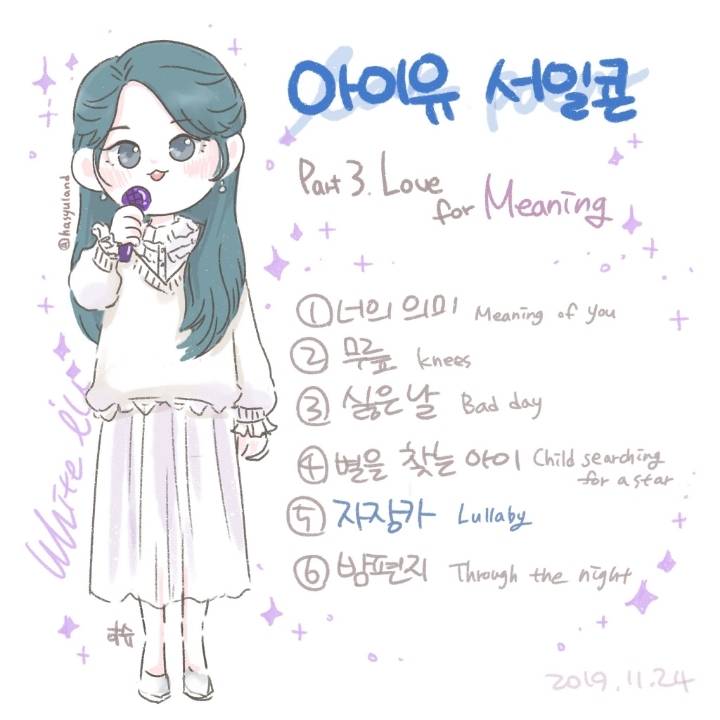 아이유 서일콘
Love, poem
Part 3. Love
for Meaning
@hasyuland
① 너의 의미 Meaning of you
② 무릎 knees
③ 싫은 날 Bad day
④ 별을 찾는 아이 Child searching
for a star
⑤ 자장가 Lullaby
⑥ 밤편지 Through the night
White iu
하슈
2019.11.24